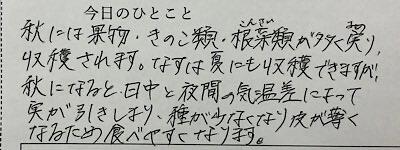 今日のひとこと
秋には果物・きのこ類・根菜類が多く実り、
収穫されます。なすは夏にも収穫できますが、
秋になると、日中と夜間の気温差によって
実が引きしまり、種が少なくなり皮が薄く
なるため食べやすくなります。